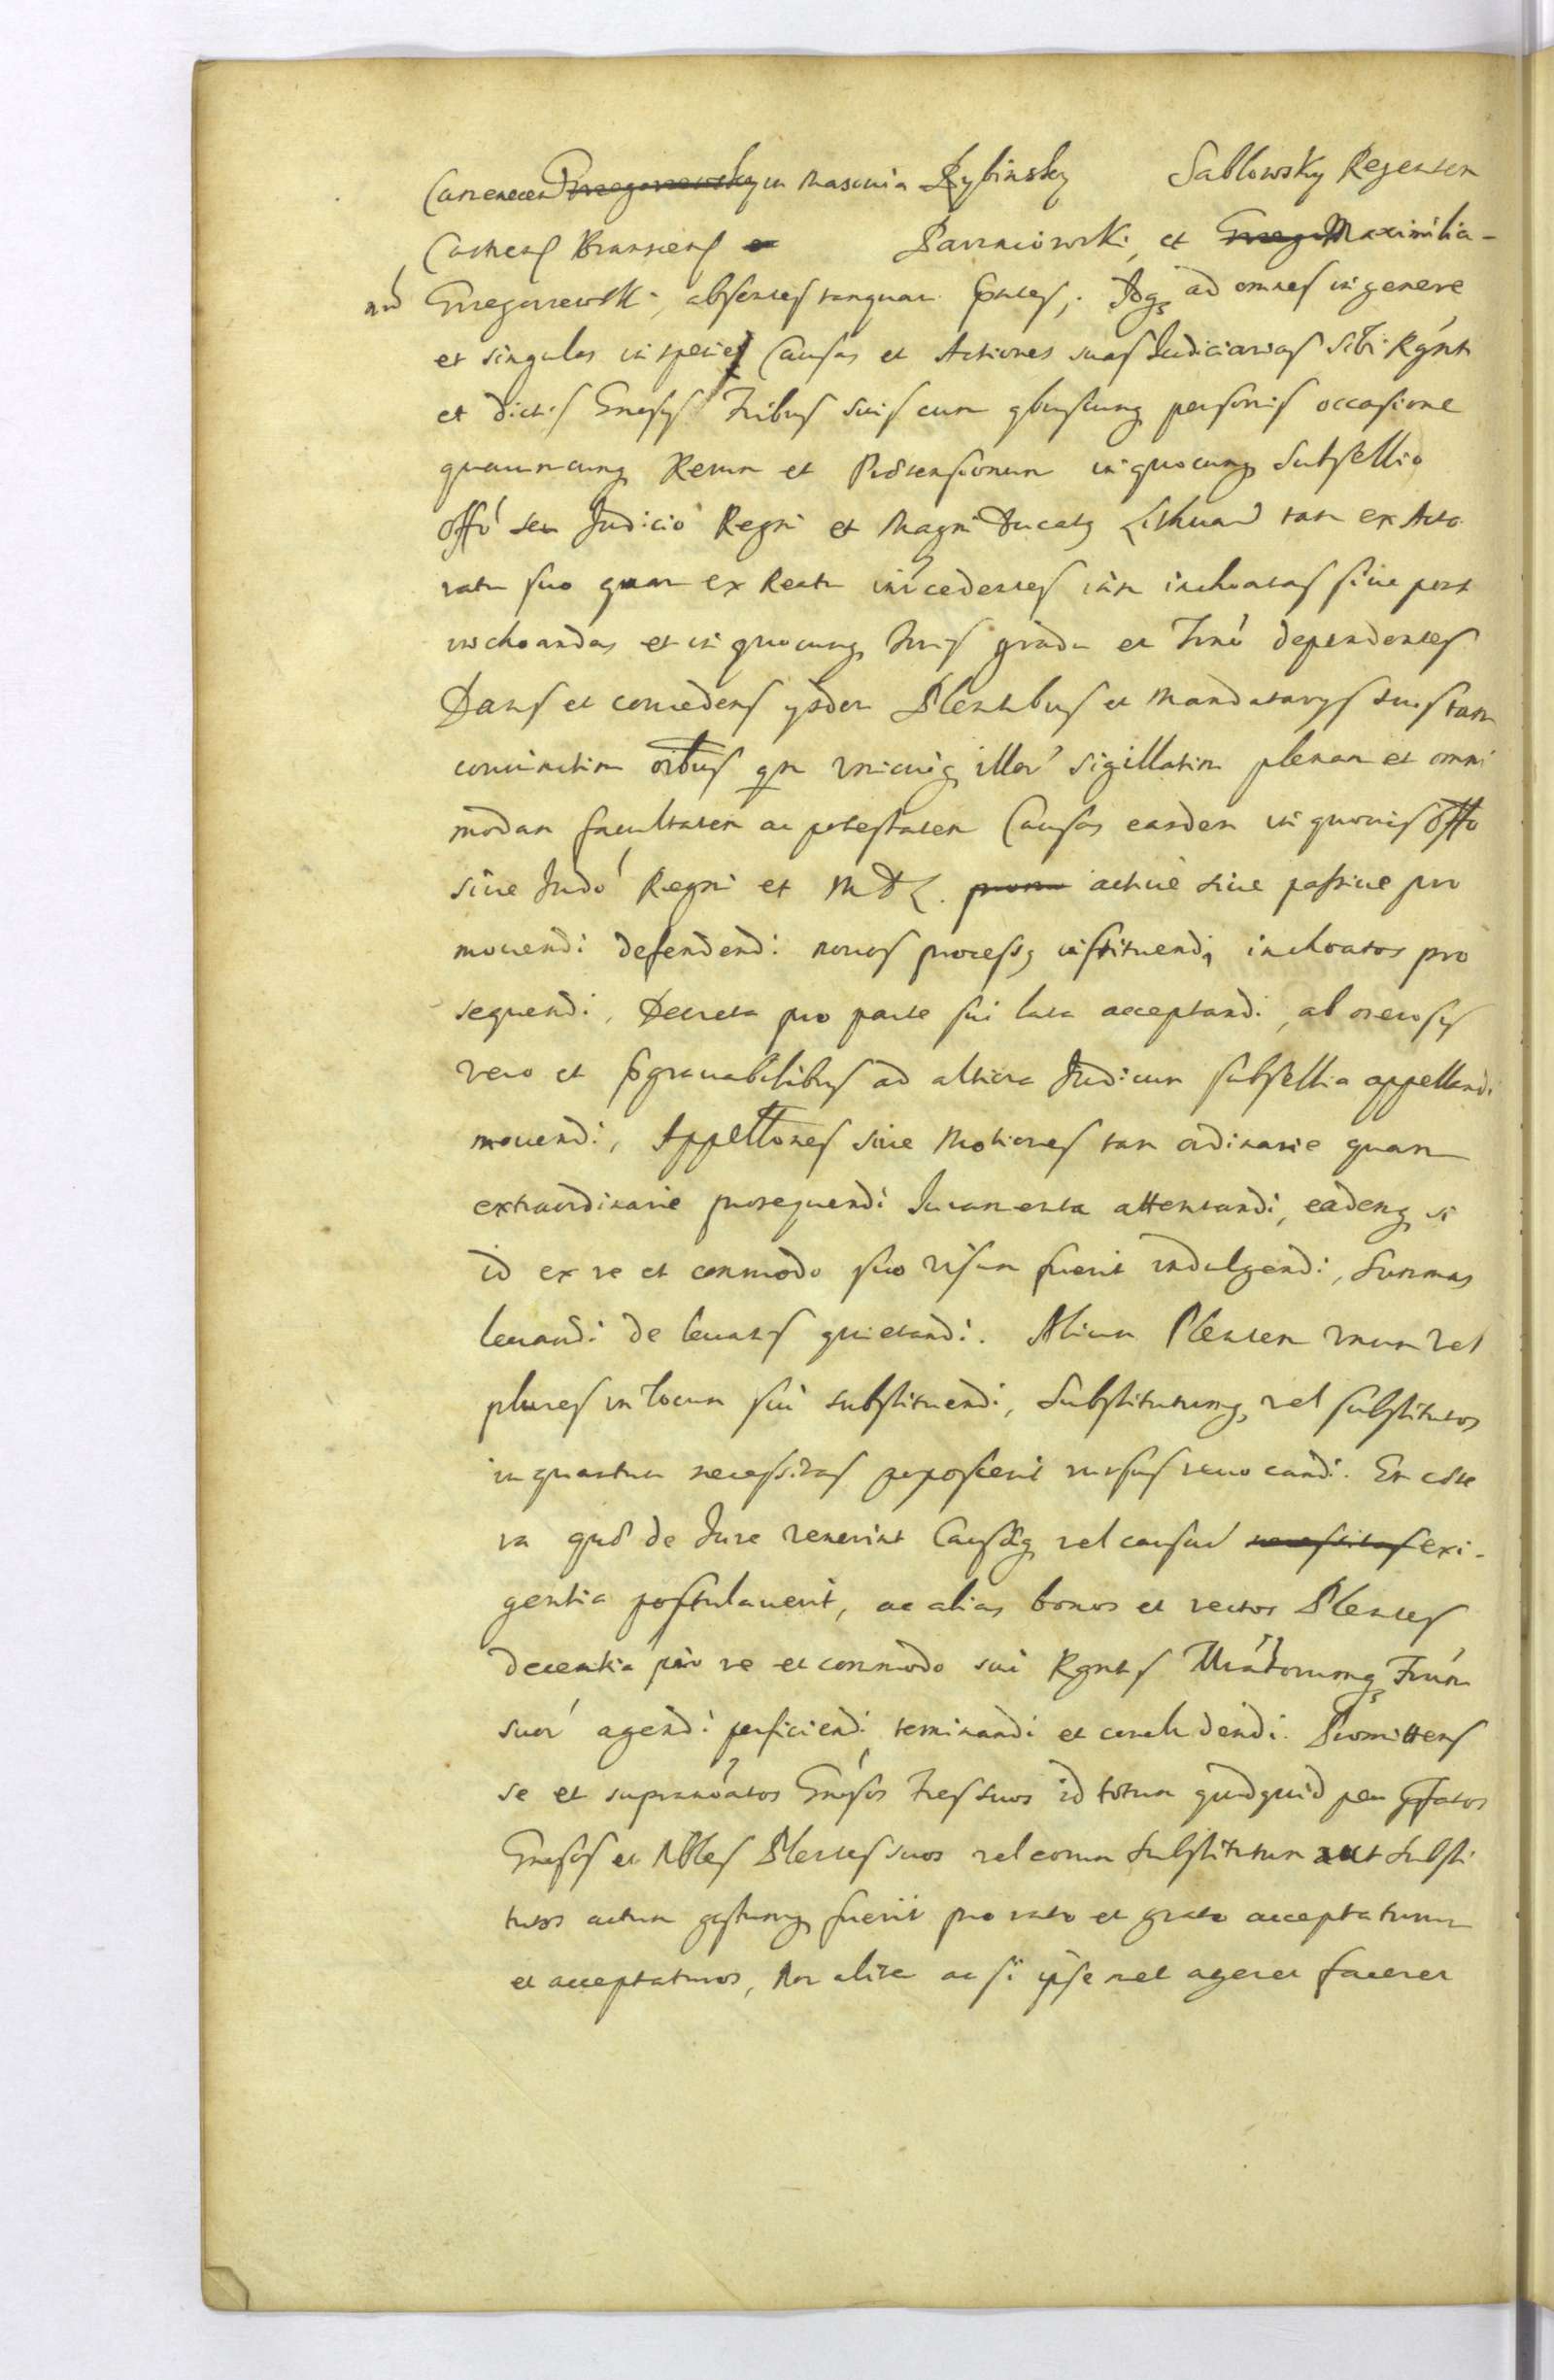 in Masovia Rybinsky Sablowsky Regentem
Castren Branscens Parzniowski, et Maximilia-
nũ Grzegorzewski, absentes tanquam pñtes, Idq3 ad omnes in genere
et singulas in specie Causas et Actiones suas Judiciarias sibi Rgñti
et dictis Gnosis Fribus suis cum qbuscunq3 personis occasione
quarumcunq3 Rerum et Prætensionum in quocunq3 Subsellio
Offo seu Judicio Regni et Magni Ducatq Lithuanæ tam ex Acto
ratu suo quam ex Reatu intcedentes iam inchoatas sive post
inchoandas et in quocunq3 Juris gradu et Trño dependentes
Dans et concedens ijsdem Plentibus et Mandatarijs suis tam
coniunctim oĩbus qm unicuiq3 illor sigillatim plenam et omni
modam facultatem ac potestatem Causas easdem in quovis Offo
sive Judo Regni et M D L. active sive passive pro
movendi defendendi novos processq instituendi, inchoatos pro
sequendi, Decreta pro parte sui lata acceptandi, ab onerosis
vero et pgravabilibus ad altiora Judicum subsellia appellandi
movendi, Appellõnes sive Motiones tam ordinarie quam
extraordinarie prosequendi Juramenta attentandi, eademq3 si
id ex re et commodo suo visum fuerit indulgendi, Summas
levandi de levatis quietandi. Alium Plentem unum vel
plures in locum sui substituendi, Substitutumq3 vel substitutos
in quantum necessitas poposcerit rursus revocandi. Et cæte
ra quæ de Jure venerint Causæq3 vel causarũ exi-
gentia postulaverit, ac alias bonos et rectos Plentes
decentia pro re et commodo sui Rgntis Frum
suor agendi perficiendi terminandi et concludendi. Promittens
se et supranoãtos Gnosos Fres suos id totum quidquid per pfatos
Gnosos et Nbles Plentes suos vel eorum substitutum aut substi
tutos actum gestumq3 fuerit pro rato et grato accepturum
et accepturos, Non aliter ac si ipse met ageret faceret